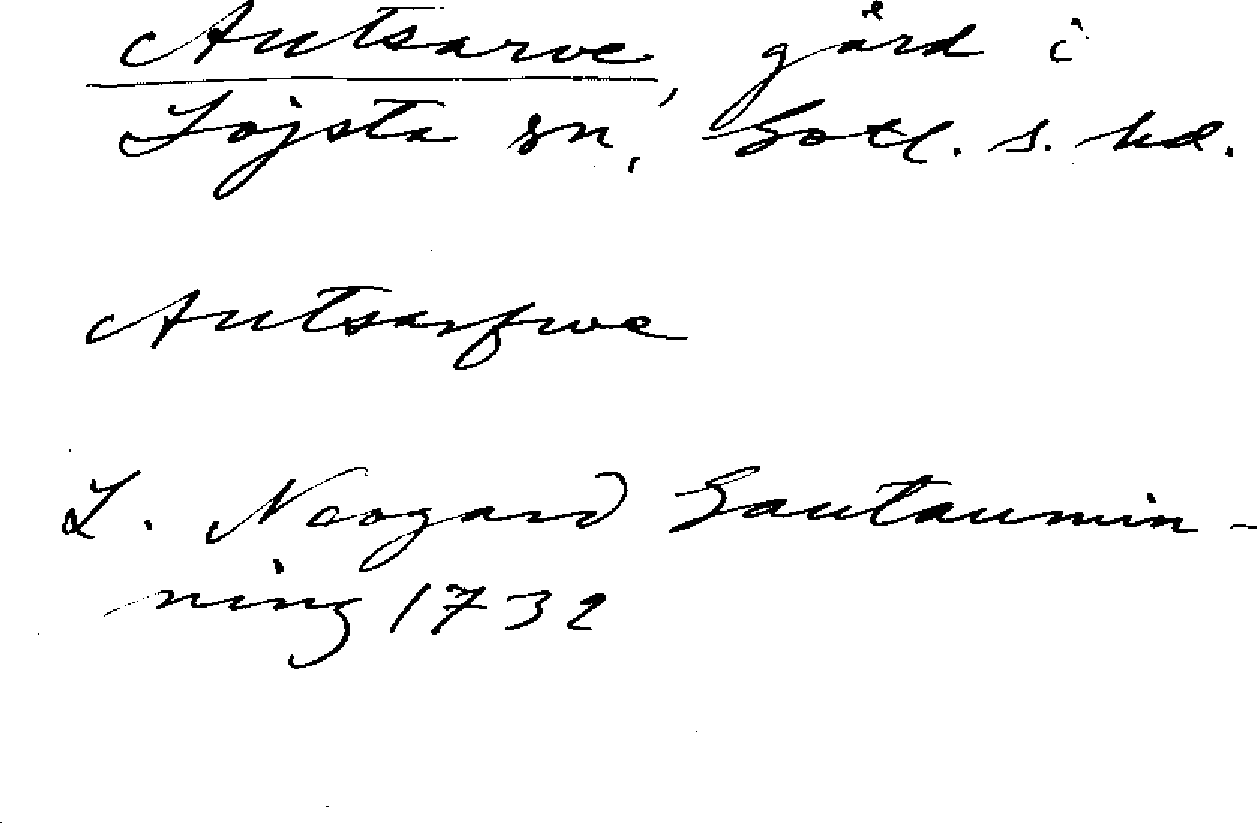 Autsarve, gård i
Lojsta sn, Gotl. s. hd.
Autsarfwe
L. Neogard Gautaumin-
ning 1732